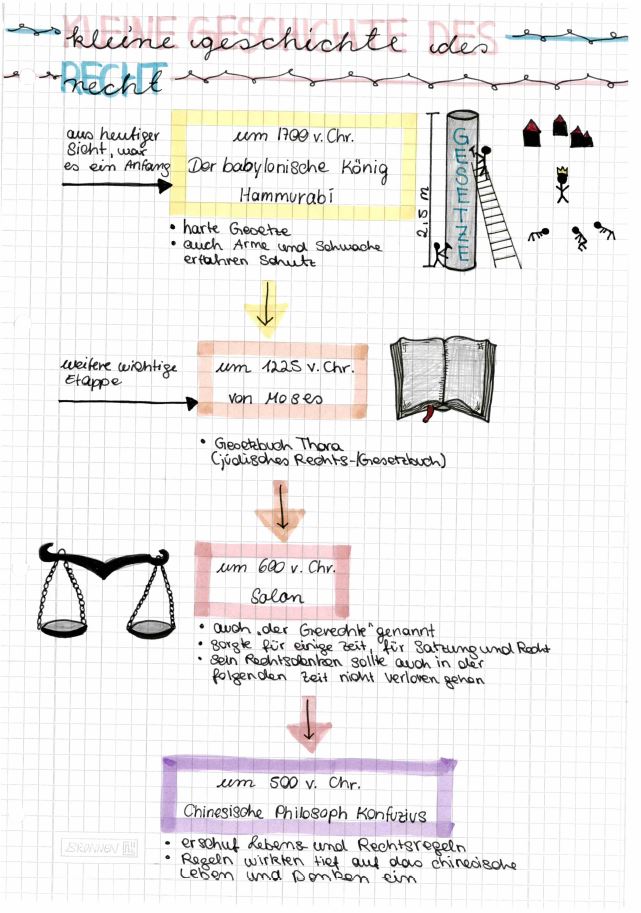 KLEINE GESCHICHTE DES
kleine geschichte des
RECHT
recht
aus heutiger
Sicht, war
es ein Anfang
um 1700 v. Chr.
Der babylonische König
Hammurabi
GESETZE
2,5 m
• harte Gesetze
• auch Arme und Schwache
erfahren Schutz
weitere wichtige
Etappe
um 1225 v. Chr.
von Moses
• Gesetzbuch Thora
(jüdisches Rechts-/Gesetzbuch)
um 600 v. Chr.
Solon
• auch „der Gerechte" genannt
• sorgte für einige Zeit, für Satzung und Recht
• sein Rechtsdenken sollte auch in der
folgenden Zeit nicht verloren gehen
um 500 v. Chr.
Chinesische Philosoph Konfuzius
• erschuf Lebens und Rechtsregeln
• Regeln wirkten tief auf das chinesische
Leben und Denken ein
BRUNNEN